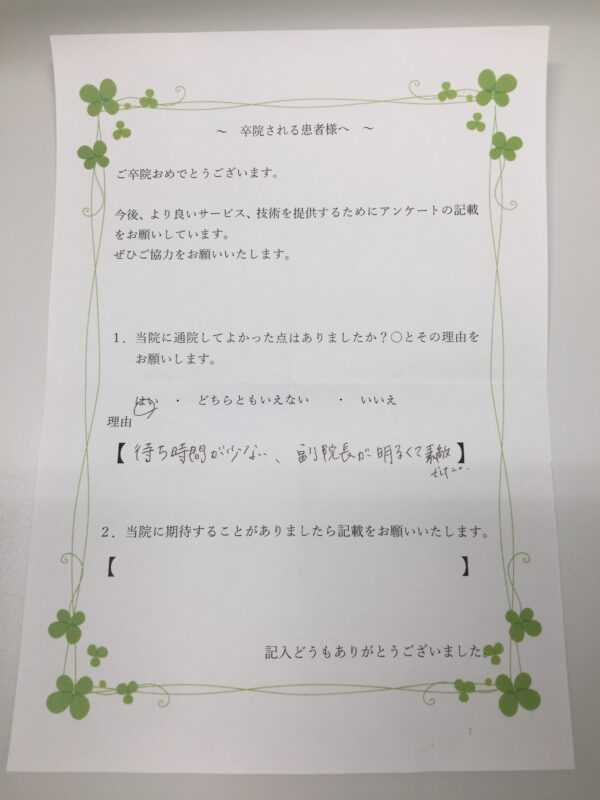 ～　卒院される患者様へ　～
ご卒院おめでとうございます。
今後、より良いサービス、技術を提供するためにアンケートの記載
をお願いしています。
ぜひご協力をお願いいたします。
１．当院に通院してよかった点はありましたか？○とその理由を
お願いします。
はい　・　どちらともいえない　・　いいえ
理由
【待ち時間が少ない、副院長が明るくて素敵】
でした。
２．当院に期待することがありましたら記載をお願いいたします。
【　】
記入どうもありがとうございました。